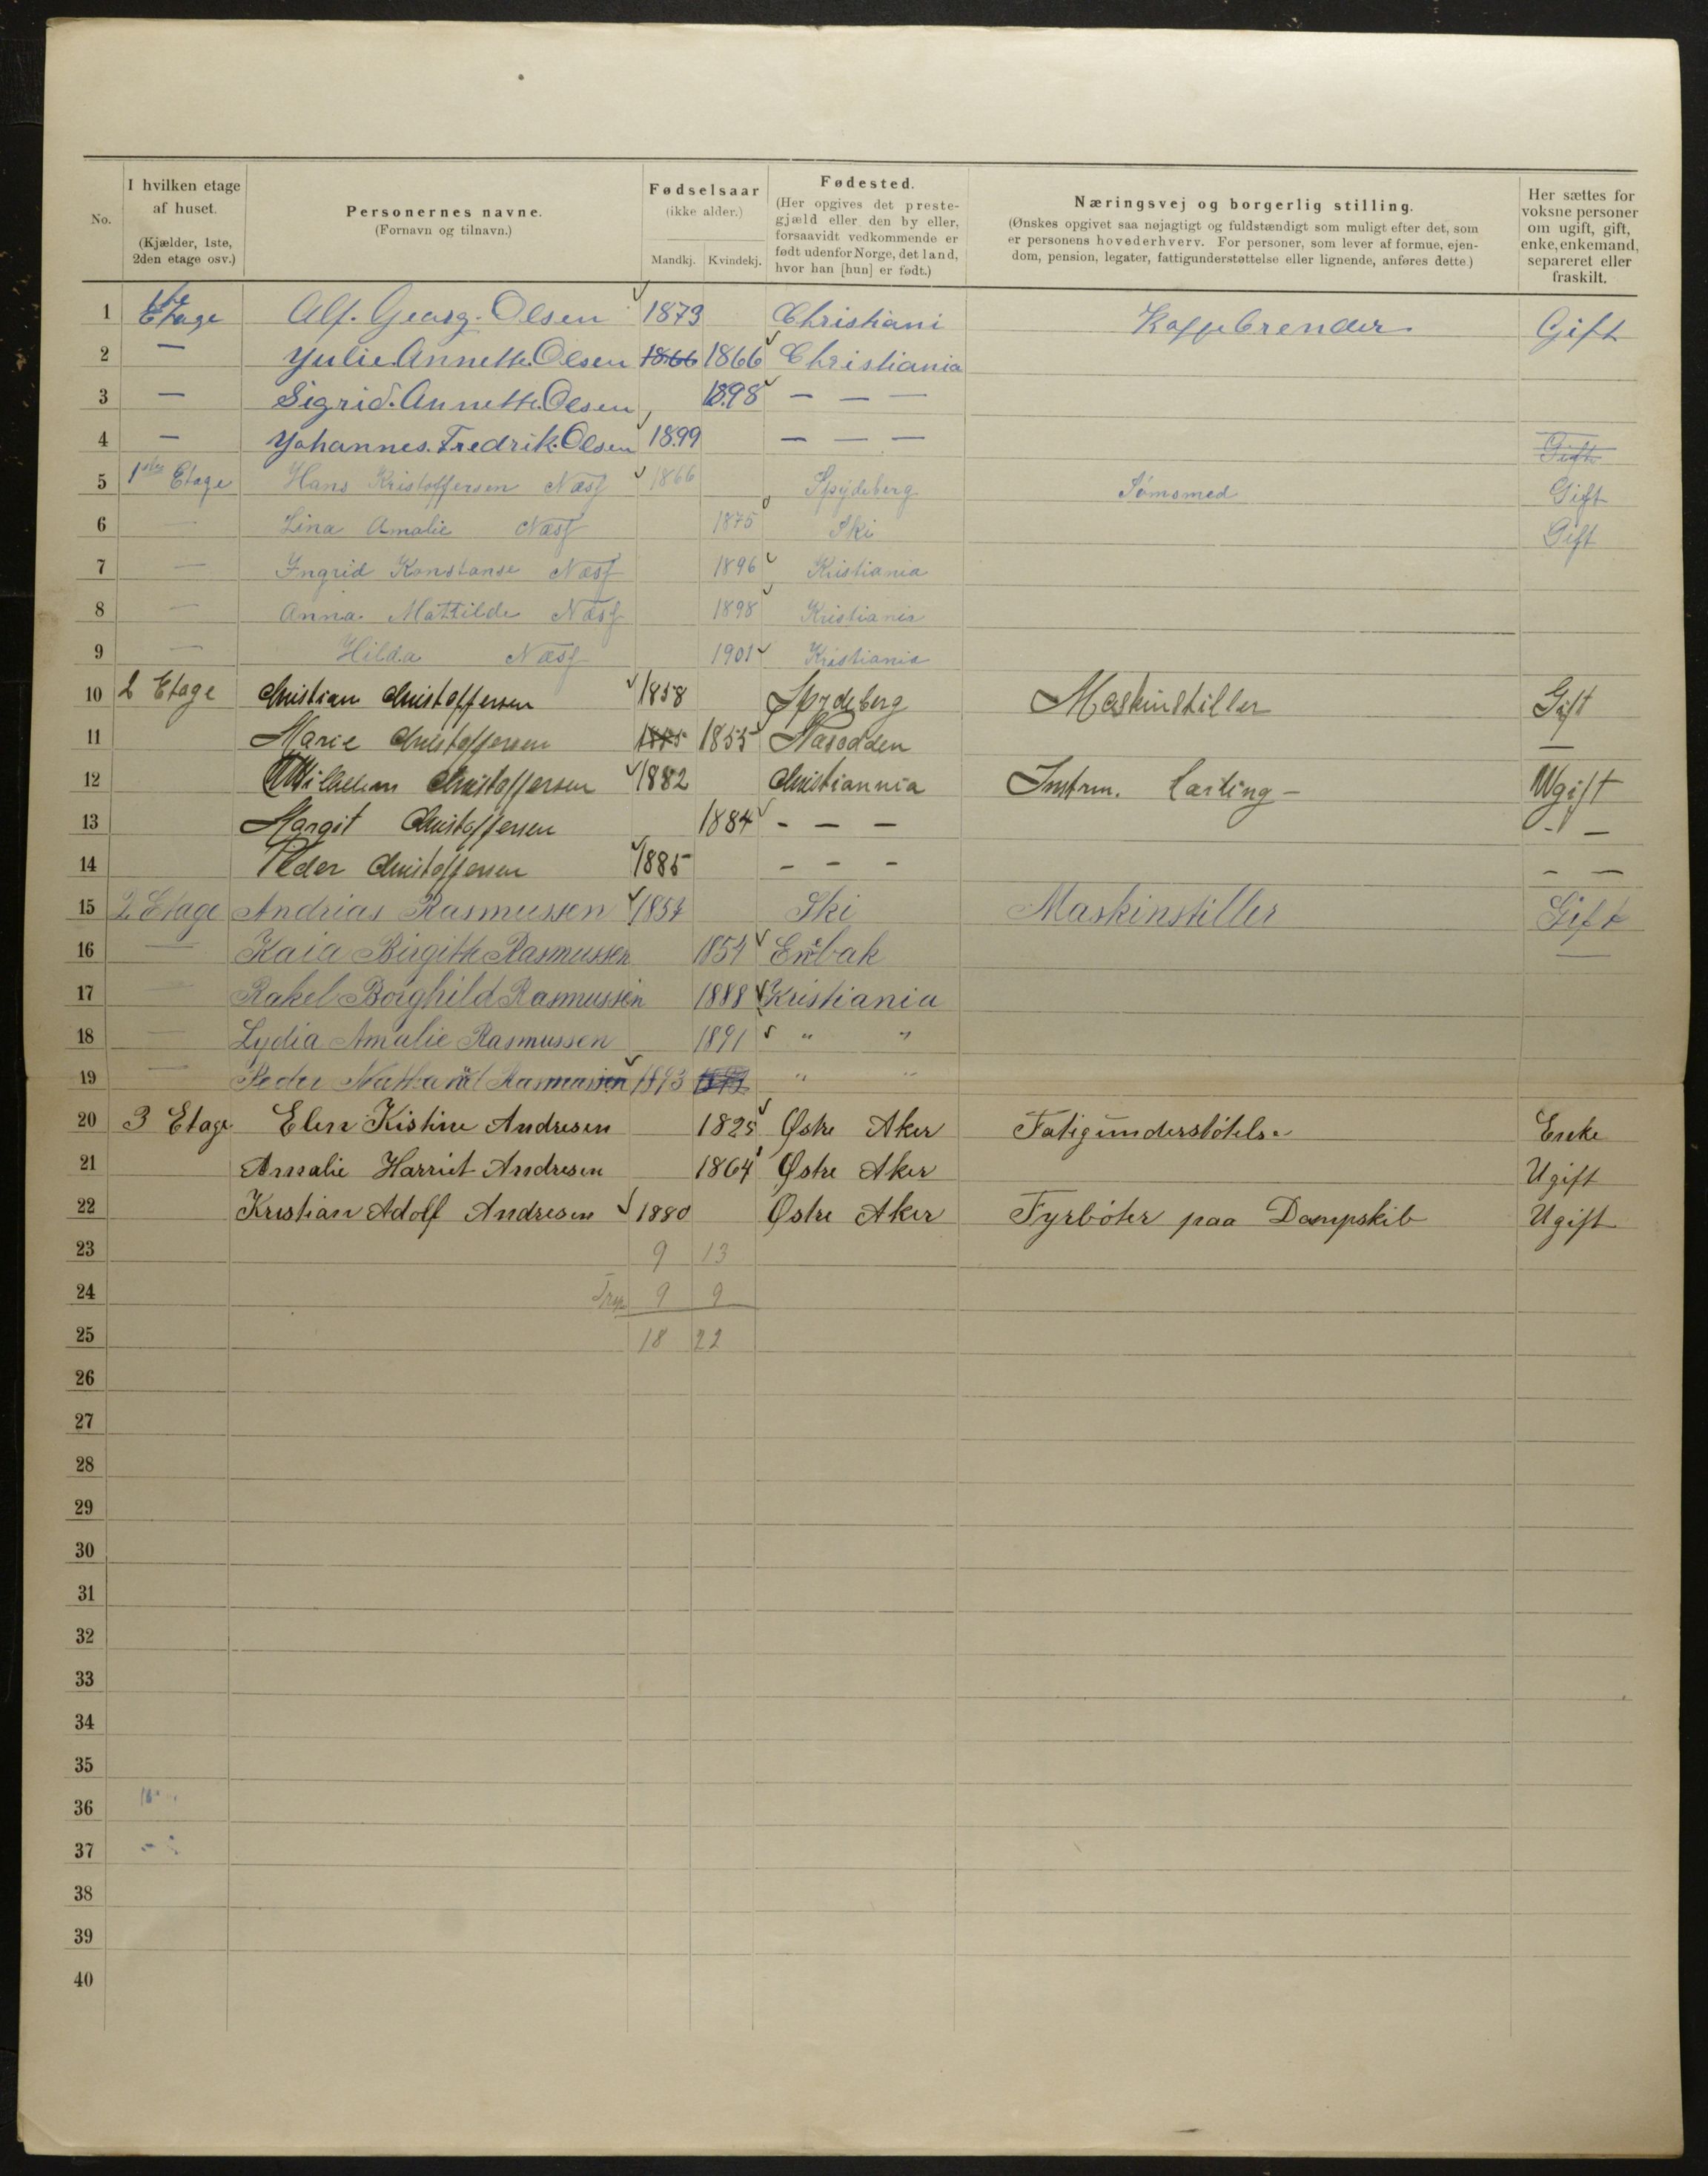 No. | I hvilken etage af huset. (Kjælder, 1ste, 2den etage osv.) | Personernes navne. (Fornavn og tilnavn.) | Fødselsaar (ikke alder.) Mandkj. | Kvindekj. | Fødested. (Her opgives det prestegjæld eller den by eller, forsaavidt vedkommende er født udenfor Norge, det land, hvor han [hun] er født.) | Næringsvej og borgerlig stilling. (Ønskes opgivet saa nøjagtigt og fuldstændigt som muligt efter det, som er personens hovederhverv. For personer, som lever af formue, ejendom, pension, legater, fattigunderstøttelse eller lignende, anføres dette.) | Her sættes for voksne personer om ugift, gift, enke, enkemand, separeret eller fraskilt.
1 1ste Etage Alf. Georg. Olsen 1873 Christiani Kaffebrender. Gift
2 — Julie. Annette. Olsen 1866 1866 Christiania
3 — Sigrid. Annette. Olsen, 1898 — — —
4 — Johannes. Fredrik. Olsen 1899 — — — Gift
5 1ste Etage Hans Kristoffersen Næss 1866 Spydeberg Sømsmed Gift
6 — Lina Amalie Næss 1875 Ski Gift
7 — Yngrid Konstanse Næss 1896 Kristiania
8 — Anna Mattilde Næss 1898 Kristiania
9 — Hilda Næss 1901 Kristiania
10 2 Etage Christian Christoffersen 1858 Spydeberg Maskinstiller Gift
11 Marie Christoffersen 1855 Næsodden —
12 Wilhelm Christoffersen 1882 Christiannia Instrm. Lærling – Ugift
13 Margit Christoffersen 1884 – – – – —
14 Peder Christoffersen 1885 – – – – —
15 2 Etage Andrias Rasmussen 1857 Ski Maskinstiller Gift
16 — Kaia Birgitte Rasmussen 1854 Enebak —
17 — Rakel Borghild Rasmussen 1888 Kristiania
18 — Lydia Amalie Rasmussen 1891 " "
19 — Peder Natanael Rasmussen 1893 " "
20 3 Etage Elen Kistine Andresen 1825 Østre Aker Fatigunderstøtelse Encke
21 Amalie Harriet Andresen 1864 Østre Aker Ugift
22 Kristian Adolf Andresen 1880 Østre Aker Fyrbøter paa Dampskib Ugift
23 9 13
24 Trsp. 9 9
25 18 22
26
27
28
29
30
31
32
33
34
35
36
37
38
39
40